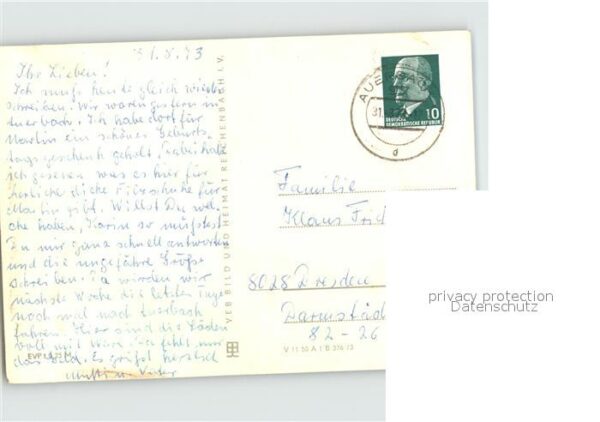 31.8.73
Ihr Lieben!
Ich muß heute gleich wieder
schreiben. Wir waren gestern in
Auerbach. Ich habe dort für
Martin ein schönes Geburts,
tagsgeschenk geholt, dabei hab
ich gesehen was es hier für
herliche dicke Filzschuhe für
Martin gibt. Willst Du wel-
che haben, Karin so müßtest
Du mir ganz schnell antworten
und die ungefähre Größe
schreiben. Da würden wir
nächste Woche die letzten Tage
noch mal nach Auerbach
fahren. Hier sind die Läden
voll mit Ware. Da fehlt nur
das Geld. Es grüßt herzlich
Mutti u. Vater
EVP
VEB BILD UND HEIMAT REICHENBACH I. V.
V 11 50 A 1 B 376/73
31.
d
DEUTSCHE
DEMOKRATISCHE REPUBLIK
10
Familie
Klaus
8028 Dresden
82-26
privacy protection
Datenschutz